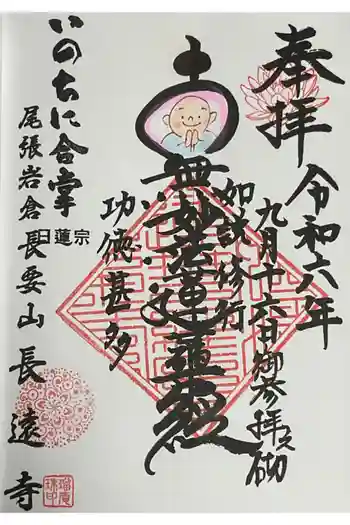 奉拝
令和六年
九月十六日御参拝之砌
如説修行
南無妙法蓮華経
功徳甚多
いのちに合掌
日蓮宗
尾張岩倉 長要山
長遠寺